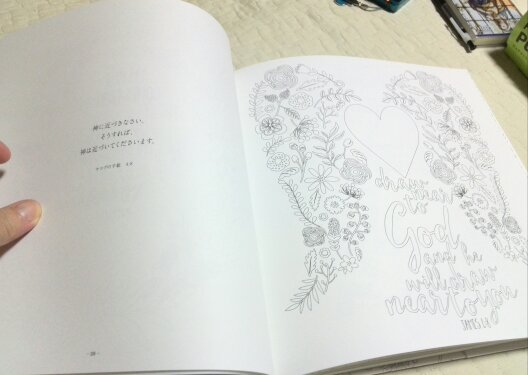 神に近づきなさい。
そうすれば、
神は近づいてくださいます。
ヤコブの手紙 4:8
draw
near
to
God
and he
will draw
near to you
JAMES 4:8